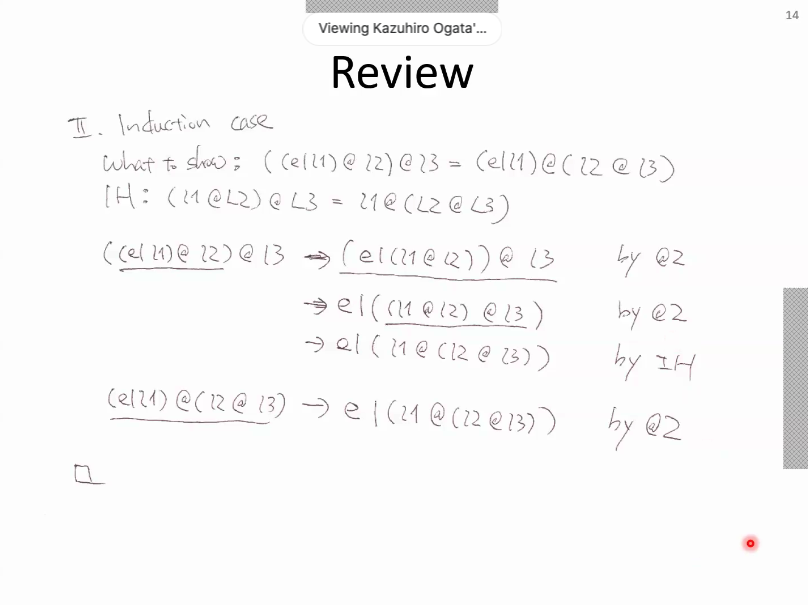 14
Viewing Kazuhiro Ogata'...
Review
II. Induction case
What to show: ((e|l1)@l2)@l3 = (e|l1)@(l2@l3)
IH: (l1@L2)@L3 = l1@(L2@L3)
((e|l1)@l2)@l3 → (e|(l1@l2))@l3 by @2
→ e|((l1@l2)@l3) by @2
→ e|(l1@(l2@l3)) by IH
(e|l1)@(l2@l3) → e|(l1@(l2@l3)) by @2